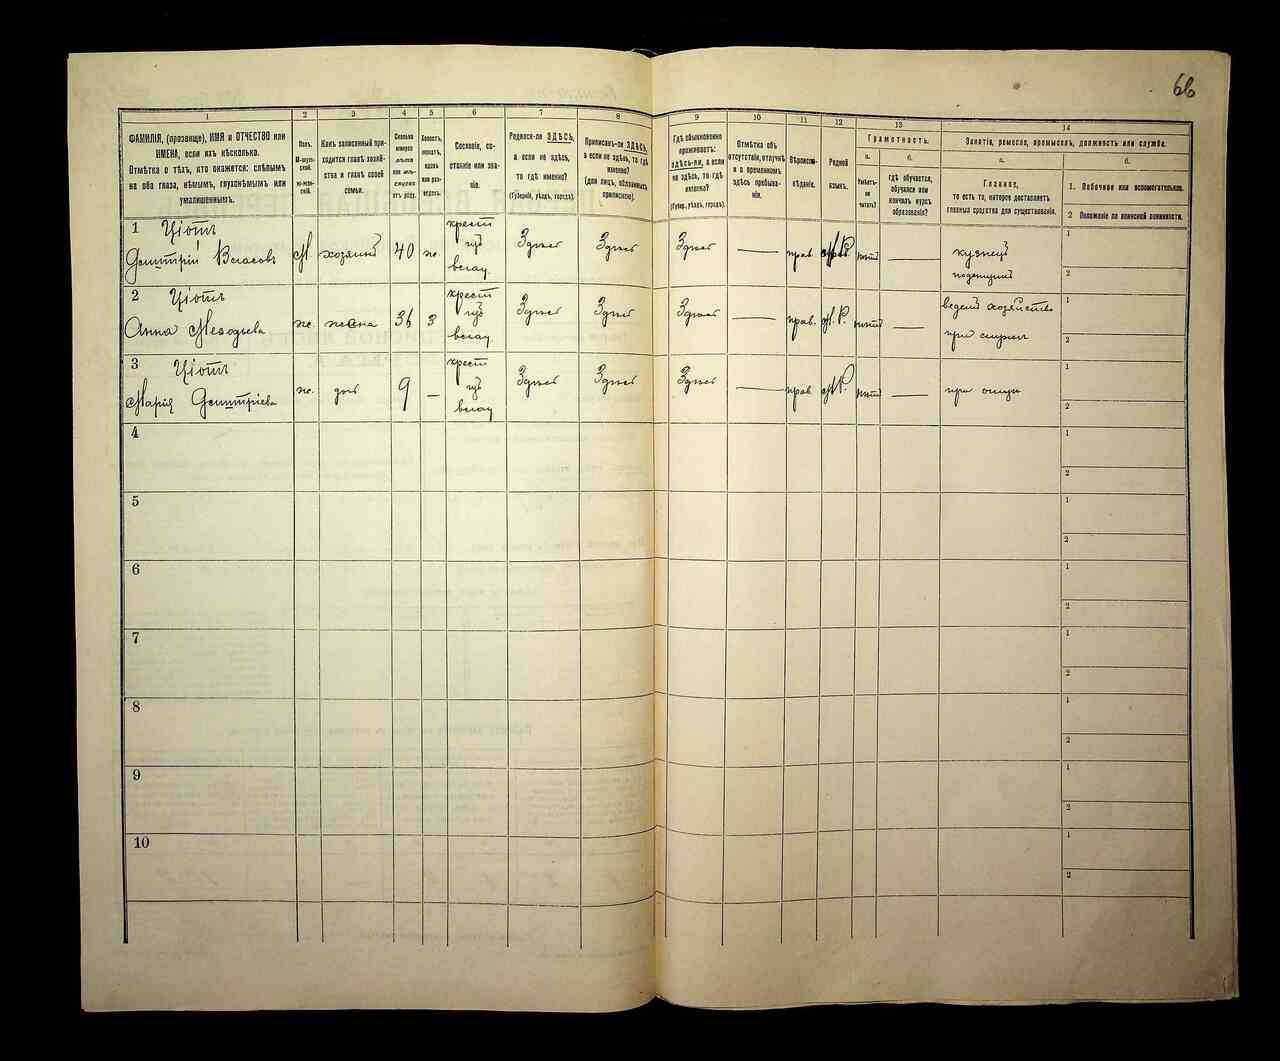 66
1 2 3 4 5 6 7 8 9 10 11 12 13 14
ФАМИЛІЯ, (прозвище), ИМЯ и ОТЧЕСТВО или
ИМЕНА, если ихъ нѣсколько.
Отмѣтка о тѣхъ, кто окажется: слѣпымъ
на оба глаза, нѣмымъ, глухонѣмымъ или
умалишеннымъ.
Полъ.
М-муж-
ской.
Ж-жен-
скій.
Какъ записанный при-
ходится главѣ хозяй-
ства и главѣ своей
семьи.
Сколько
минуло
лѣтъ
или мѣ-
сяцевъ
отъ роду.
Холостъ,
женатъ,
вдовъ
или раз-
веденъ.
Сословіе, со-
стояніе или зва-
ніе.
Родился-ли ЗДѢСЬ,
а если не здѣсь,
то гдѣ именно?
(Губернія, уѣздъ, городъ).
Приписанъ-ли ЗДѢСЬ,
а если не здѣсь, то гдѣ
именно?
(для лицъ, обязанныхъ
припискою).
Гдѣ обыкновенно
проживаетъ:
здѣсь-ли, а если
не здѣсь, то гдѣ
именно?
(Губер., уѣздъ, городъ).
Отмѣтка объ
отсутствіи, отлучкѣ
и о временномъ
здѣсь пребыва-
ніи.
Вѣроиспо-
вѣданіе.
Родной
языкъ.
Грамотность.
а.
Умѣетъ-
ли
читать?
б.
гдѣ обучается,
обучался или
кончилъ курсъ
образованія?
Занятіе, ремесло, промыселъ, должность или служба.
а.
Главное,
то есть то, которое доставляетъ
главныя средства для существованія.
б.
1. Побочное или вспомогательное.
2 Положеніе по воинской повинности.
1 Ціотъ
Дмитрій Власовъ М. хозяинъ 40 ж. крест изъ Здѣсь Здѣсь Здѣсь — прав. М.Р. — кузнец
2 Ціотъ
Анна Меѳодьева ж. жена 36 з крест изъ Здѣсь Здѣсь Здѣсь — прав. М.Р. — ведет хозяйство
при мужѣ
3 Ціотъ
Марія Дмитріева ж. дочь 9 — крест изъ Здѣсь Здѣсь Здѣсь — прав. М.Р. — при отцѣ
4
5
6
7
8
9
10